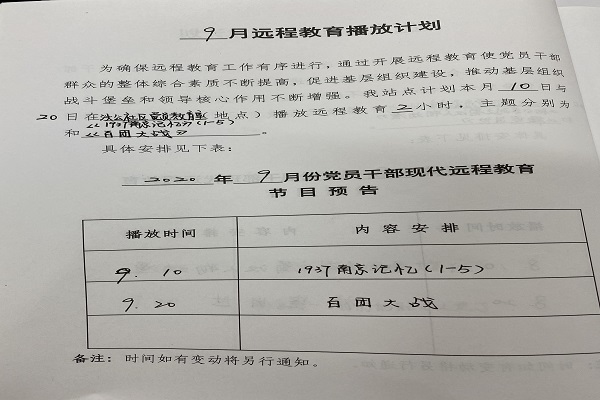 9月远程教育播放计划
为确保远程教育工作有序进行，通过开展远程教育使党员干部
群众的整体综合素质不断提高，促进基层组织建设，推动基层组织
战斗堡垒和领导核心作用不断增强。我站点计划本月 10 日与
20日在 社区党员教室（地点）播放远程教育 2 小时，主题分别为
《1937南京记忆》(1-5)
和《百团大战》。
具体安排见下表：
2020 年 9 月份党员干部现代远程教育
节目预告
播放时间 内容安排
9.10 1937南京记忆(1-5)
9.20 百团大战
备注：时间如有变动将另行通知。